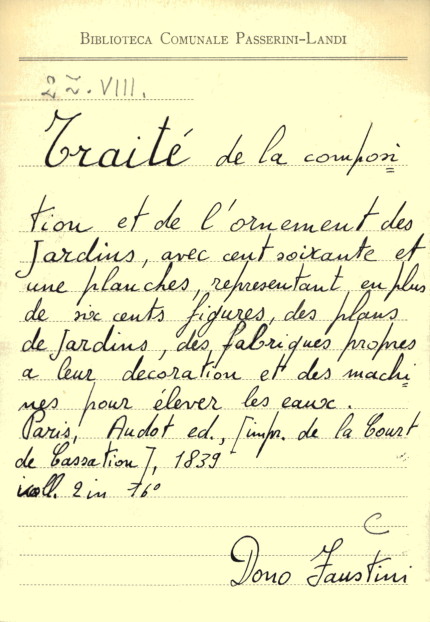 BIBLIOTECA COMUNALE PASSERINI-LANDI
22.VIII.
Traité de la composi
tion et de l'ornement des
Jardins, avec cent soixante et
une planches, representant en plus
de six cents figures, des plans
de Jardins, des fabriques propres
a leur decoration et des machi
nes pour élever les eaux.
Paris, Audot ed., [impr. de la Court
de Cassation], 1839
voll. 2 in 16°
C
Dono Faustini